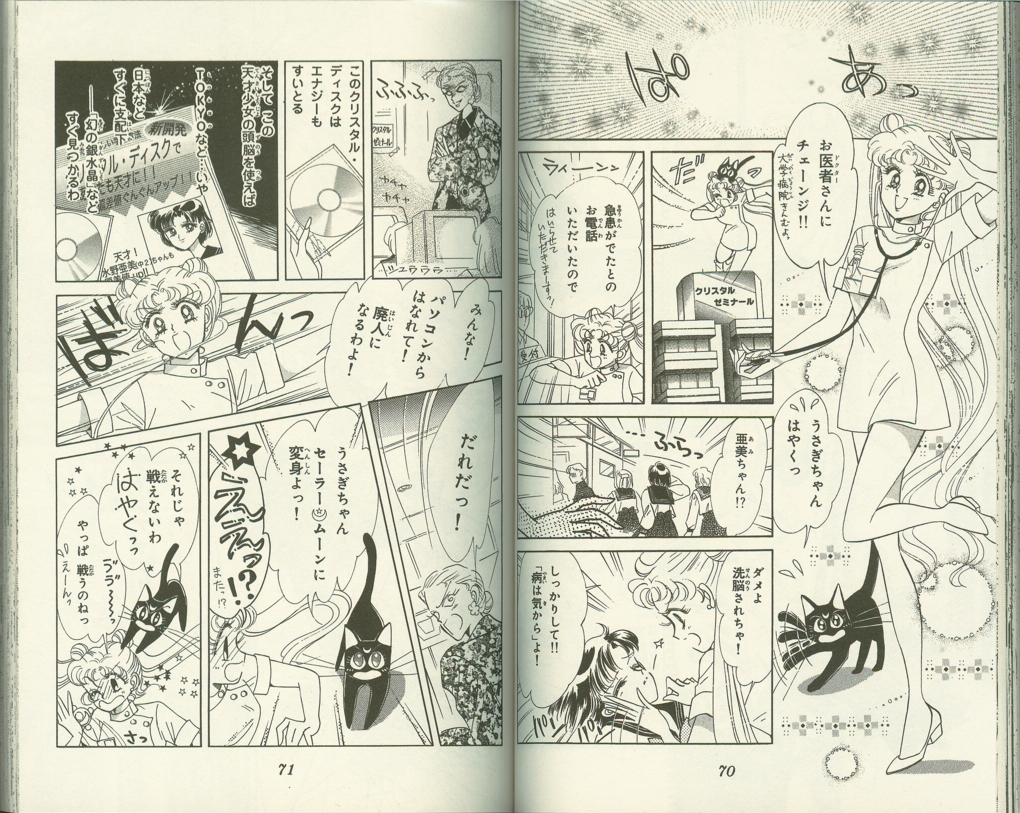 ぱあっ
お医者さんに
チェーンジ!!
大学病院きんむよ。
うさぎちゃん
はやくっ
だ
クリスタル
ゼミナール
ウィーーンン
急患がでたとの
お電話
いただいたので
はいらせて
いただきまーすっ
受付
亜美ちゃん!?
…ふらっ
ダメよ
洗脳されちゃ!
しっかりして!!
「病は気から」よ!
70
ふふふっ
クリスタル
ゼミナール
カチャ
このクリスタル・
ディスクは
エナジーも
すいとる
そして この
天才少女の頭脳を使えば
TOKYOなど・いや
日本など
すぐに支配
――「幻の銀水晶」など
すぐ見つかるわ
新開発
ル・ディスクで
たも天才に!!
差値ぐんぐんアップ!!
天才!
水野亜美(中2)ちゃんも
up!!
みんな!
パソコンから
はなれて!
廃人に
なるわよ!
ばんっ
だれだっ!
うさぎちゃん
セーラームーンに
変身よっ!
ええっ!?
また!?
それじゃ
戦えないわ
はやくっっ
やっぱ 戦うのねっ
えーんっ
さっ
71